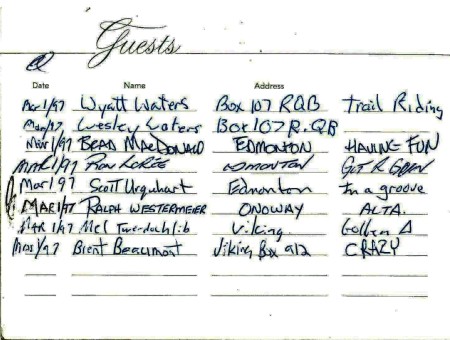 Guests
Date Name Address
Mar 1/97 Wyatt Waters Box 107 RQB Trail Riding
Mar/97 Wesley Waters Box 107 R.QB
Mar 1/97 BRAD MACDONALD EDMONTON HAVING FUN
MAR 1/97 RON LORÉE EDMONTON GIT R
Mar 1 97 Scott Urquhart Edmonton In a groove
MAR 1/97 RALPH WESTERMEIER ONOWAY ALTA.
MAR 1/97 Mel Twerdochlib Viking
Mar 1/97 Brent Beaumont Viking Box 912 CRAZY